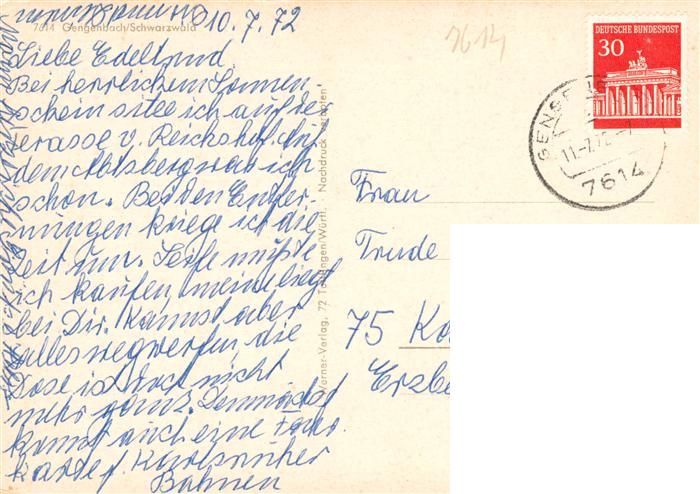 10.7.72
7614 Gengenbach/Schwarzwald
Liebe Edeltrud.
Bei herrlichem Sonnen-
schein sitze ich auf der
Terasse v. Reichshof. Auf
dem Abtsberg war ich
schon. Bei den Entfer-
nungen kriege ich die
Zeit rum. Seife mußte
ich kaufen, meine liegt
bei Dir. Kannst aber
alles wegwerfen, die
Dose ist doch nicht
mehr ganz. Demnächst
kannst auch eine
karte f. Karlsruher
Bahnen
Werner-Verlag, 72 Tuttlingen/Württ. Nachdruck verboten
7614
DEUTSCHE BUNDESPOST
30
11.-7.72
7614
Frau
Trude
75 Ka
Erzbe